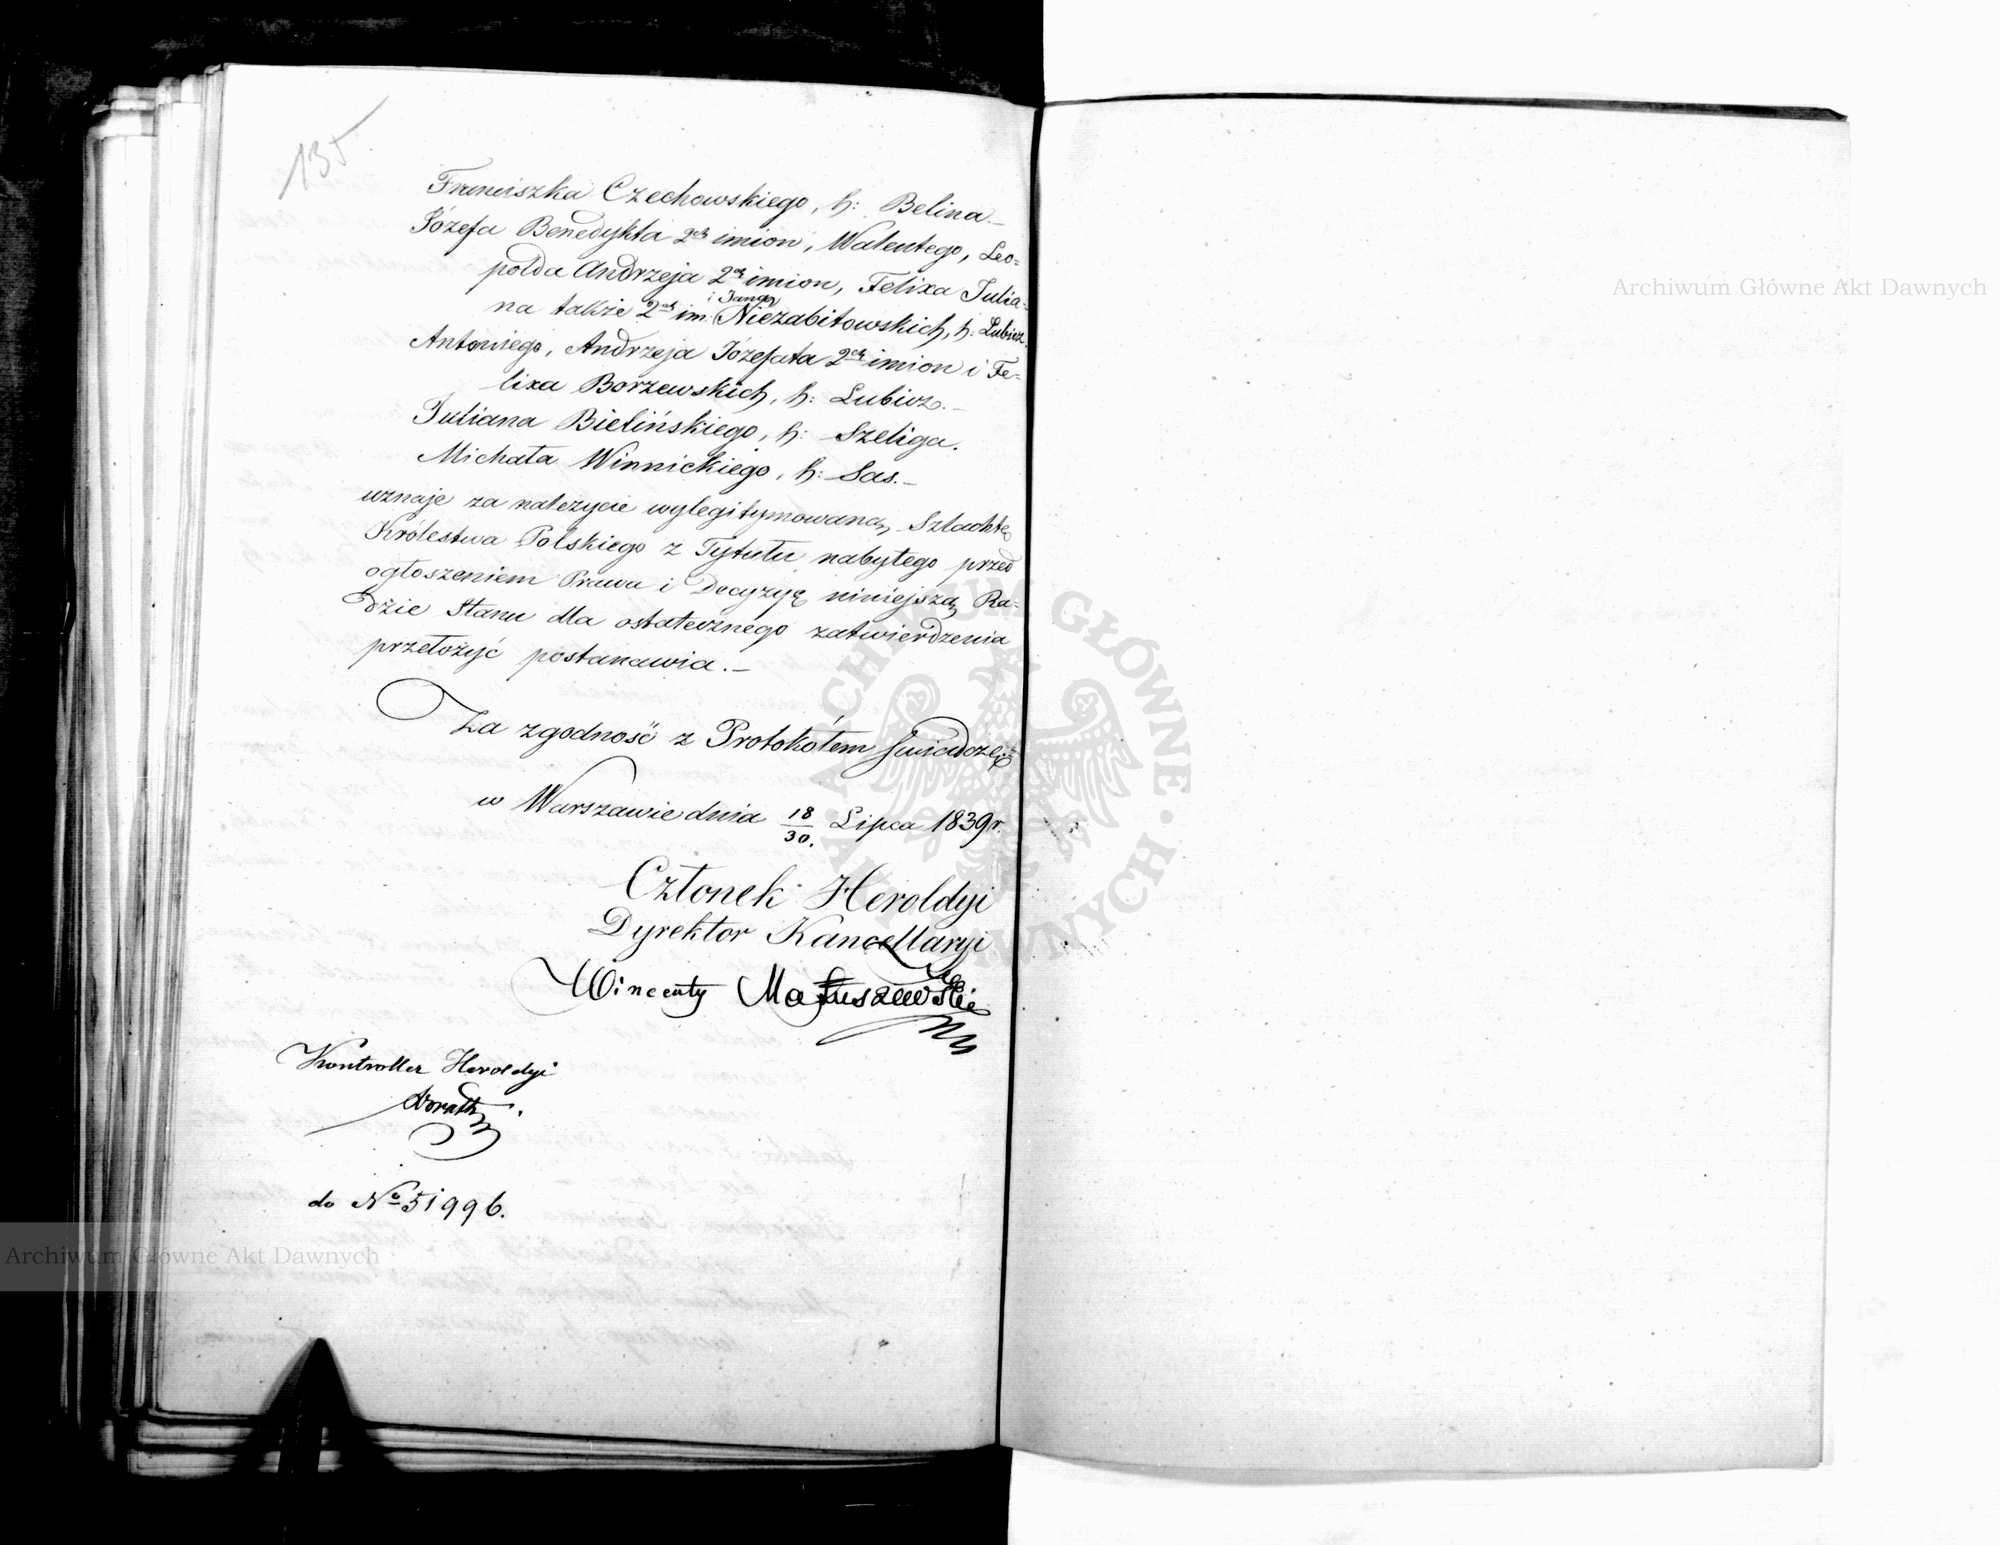 135
Franciszka Czechowskiego, h: Belina.—
Józefa Benedykta 2ch imion, Walentego, Leo=
polda Andrzeja 2ch imion, Felixa Julia=
na także 2ch im: i Jana Niezabitowskich, h: Lubicz.
Antoniego, Andrzeja Józefata 2ch imion i Fe=
lixa Borzewskich, h: Lubicz.—
Juliana Bielińskiego, h: Szeliga.
Michała Winnickiego, h: Sas.—
uznaje za należycie wylegitymowaną Szlachtę
Królestwa Polskiego z Tytułu nabytego przed
ogłoszeniem Prawa i Decyzyę niniejszą Ra=
dzie Stanu dla ostatecznego zatwierdzenia
przełożyć postanawia.—
Za zgodność z Protokółem świadczę
w Warszawie dnia 18/30. Lipca 1839 r.
Członek Heroldyi
Dyrektor Kancellaryi
Wincenty Matuszewski
Kontroller Heroldyi
do No 51996.
Archiwum Główne Akt Dawnych
Archiwum Główne Akt Dawnych
ARCHIWUM GŁÓWNE AKT DAWNYCH